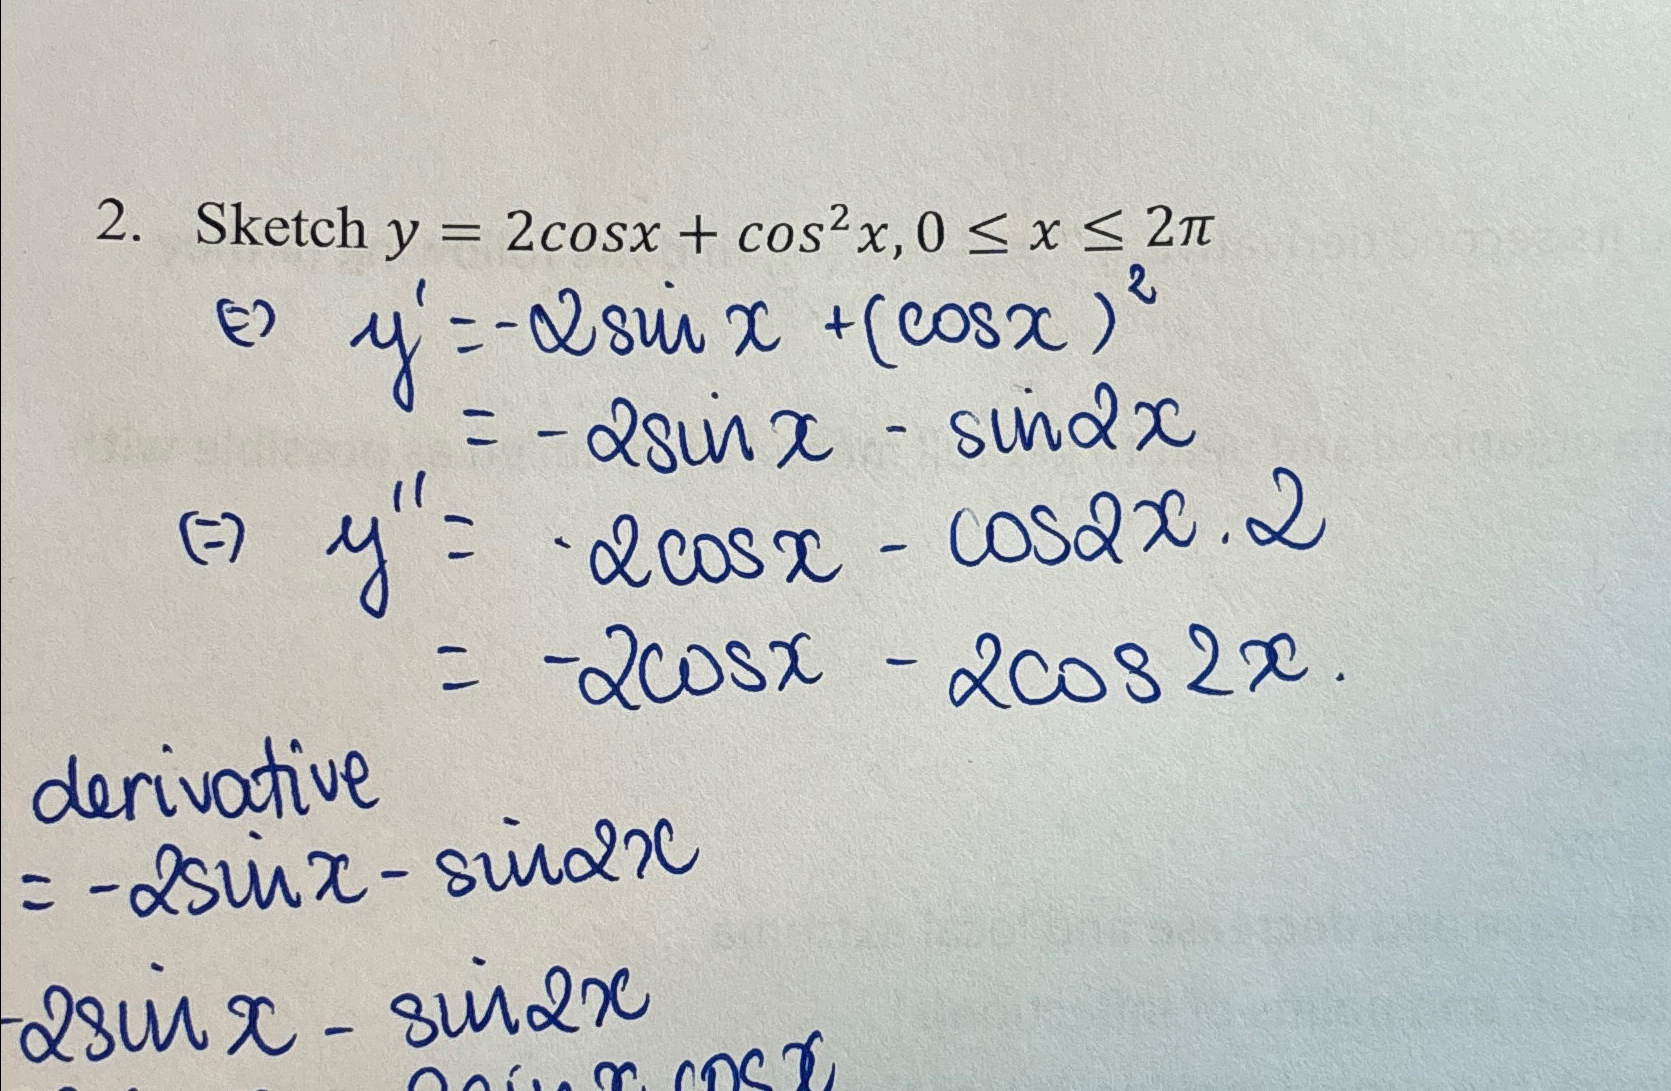 2. Sketch y = 2cosx + cos²x, 0 ≤ x ≤ 2π
(=) y' = -2sin x + (cosx)²
= -2sin x - sin2x
(=) y'' = -2cosx - cos2x.2
= -2cosx - 2cos2x.
derivative
= -2sinx - sin2x
-2sin x - sin2x
2sin x cos x